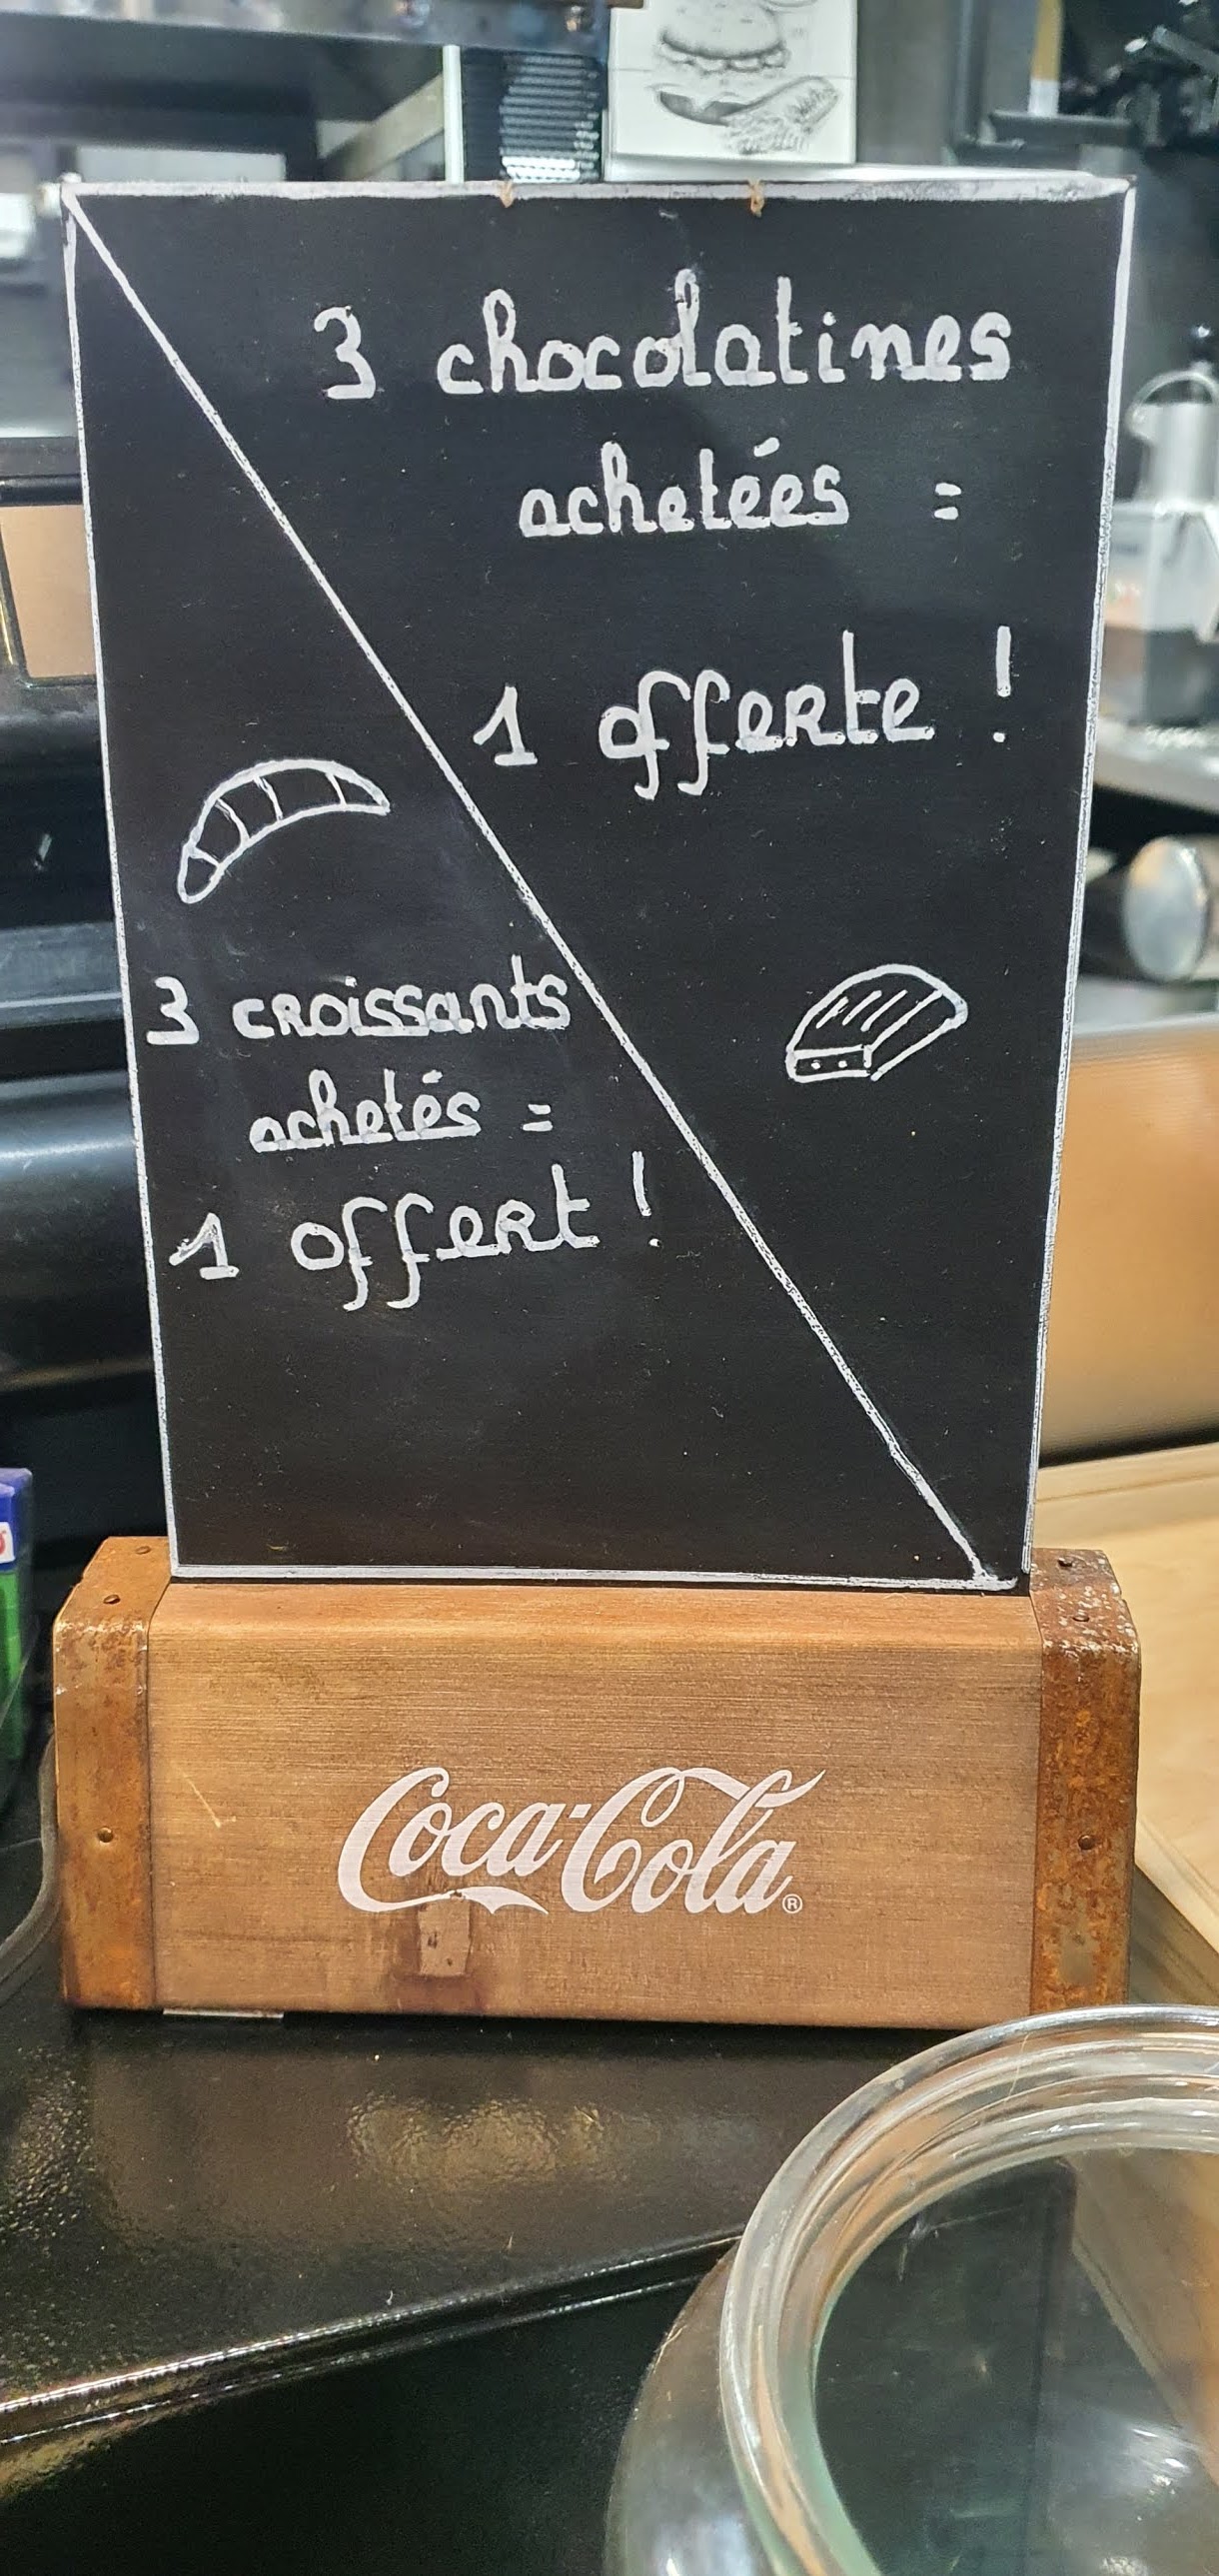 3 chocolatines
achetées =
1 offerte !
3 croissants
achetés =
1 offert !
Coca-Cola®